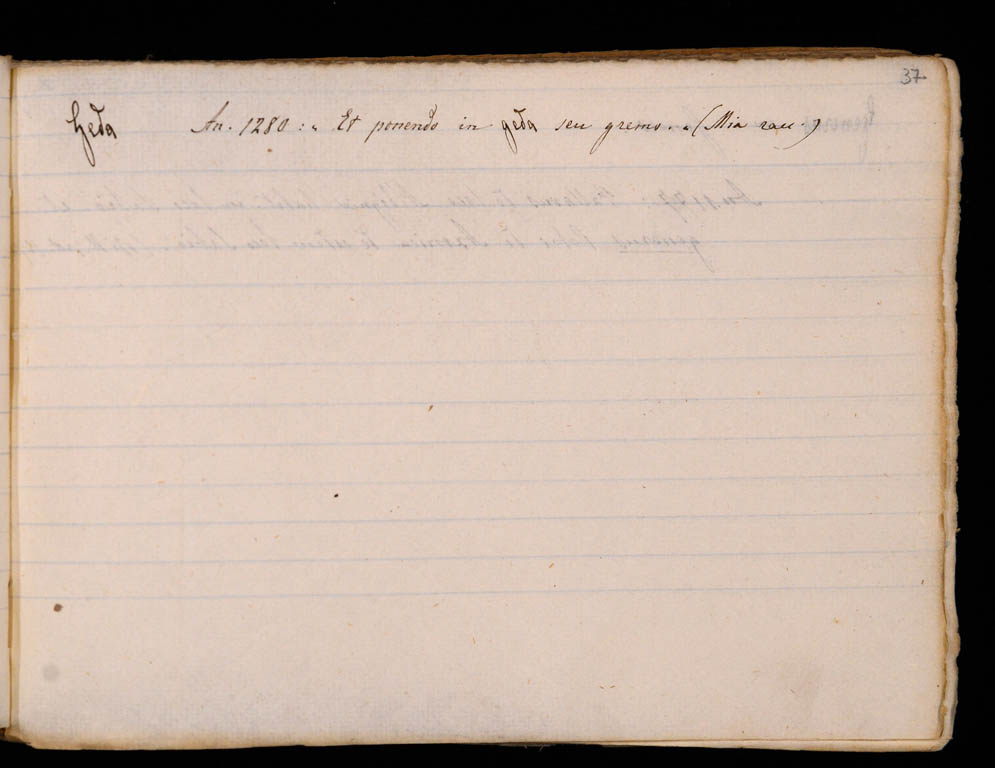 37
Geda An. 1280: „ Et ponendo in geda seu gremo. „ (Mia racc.)